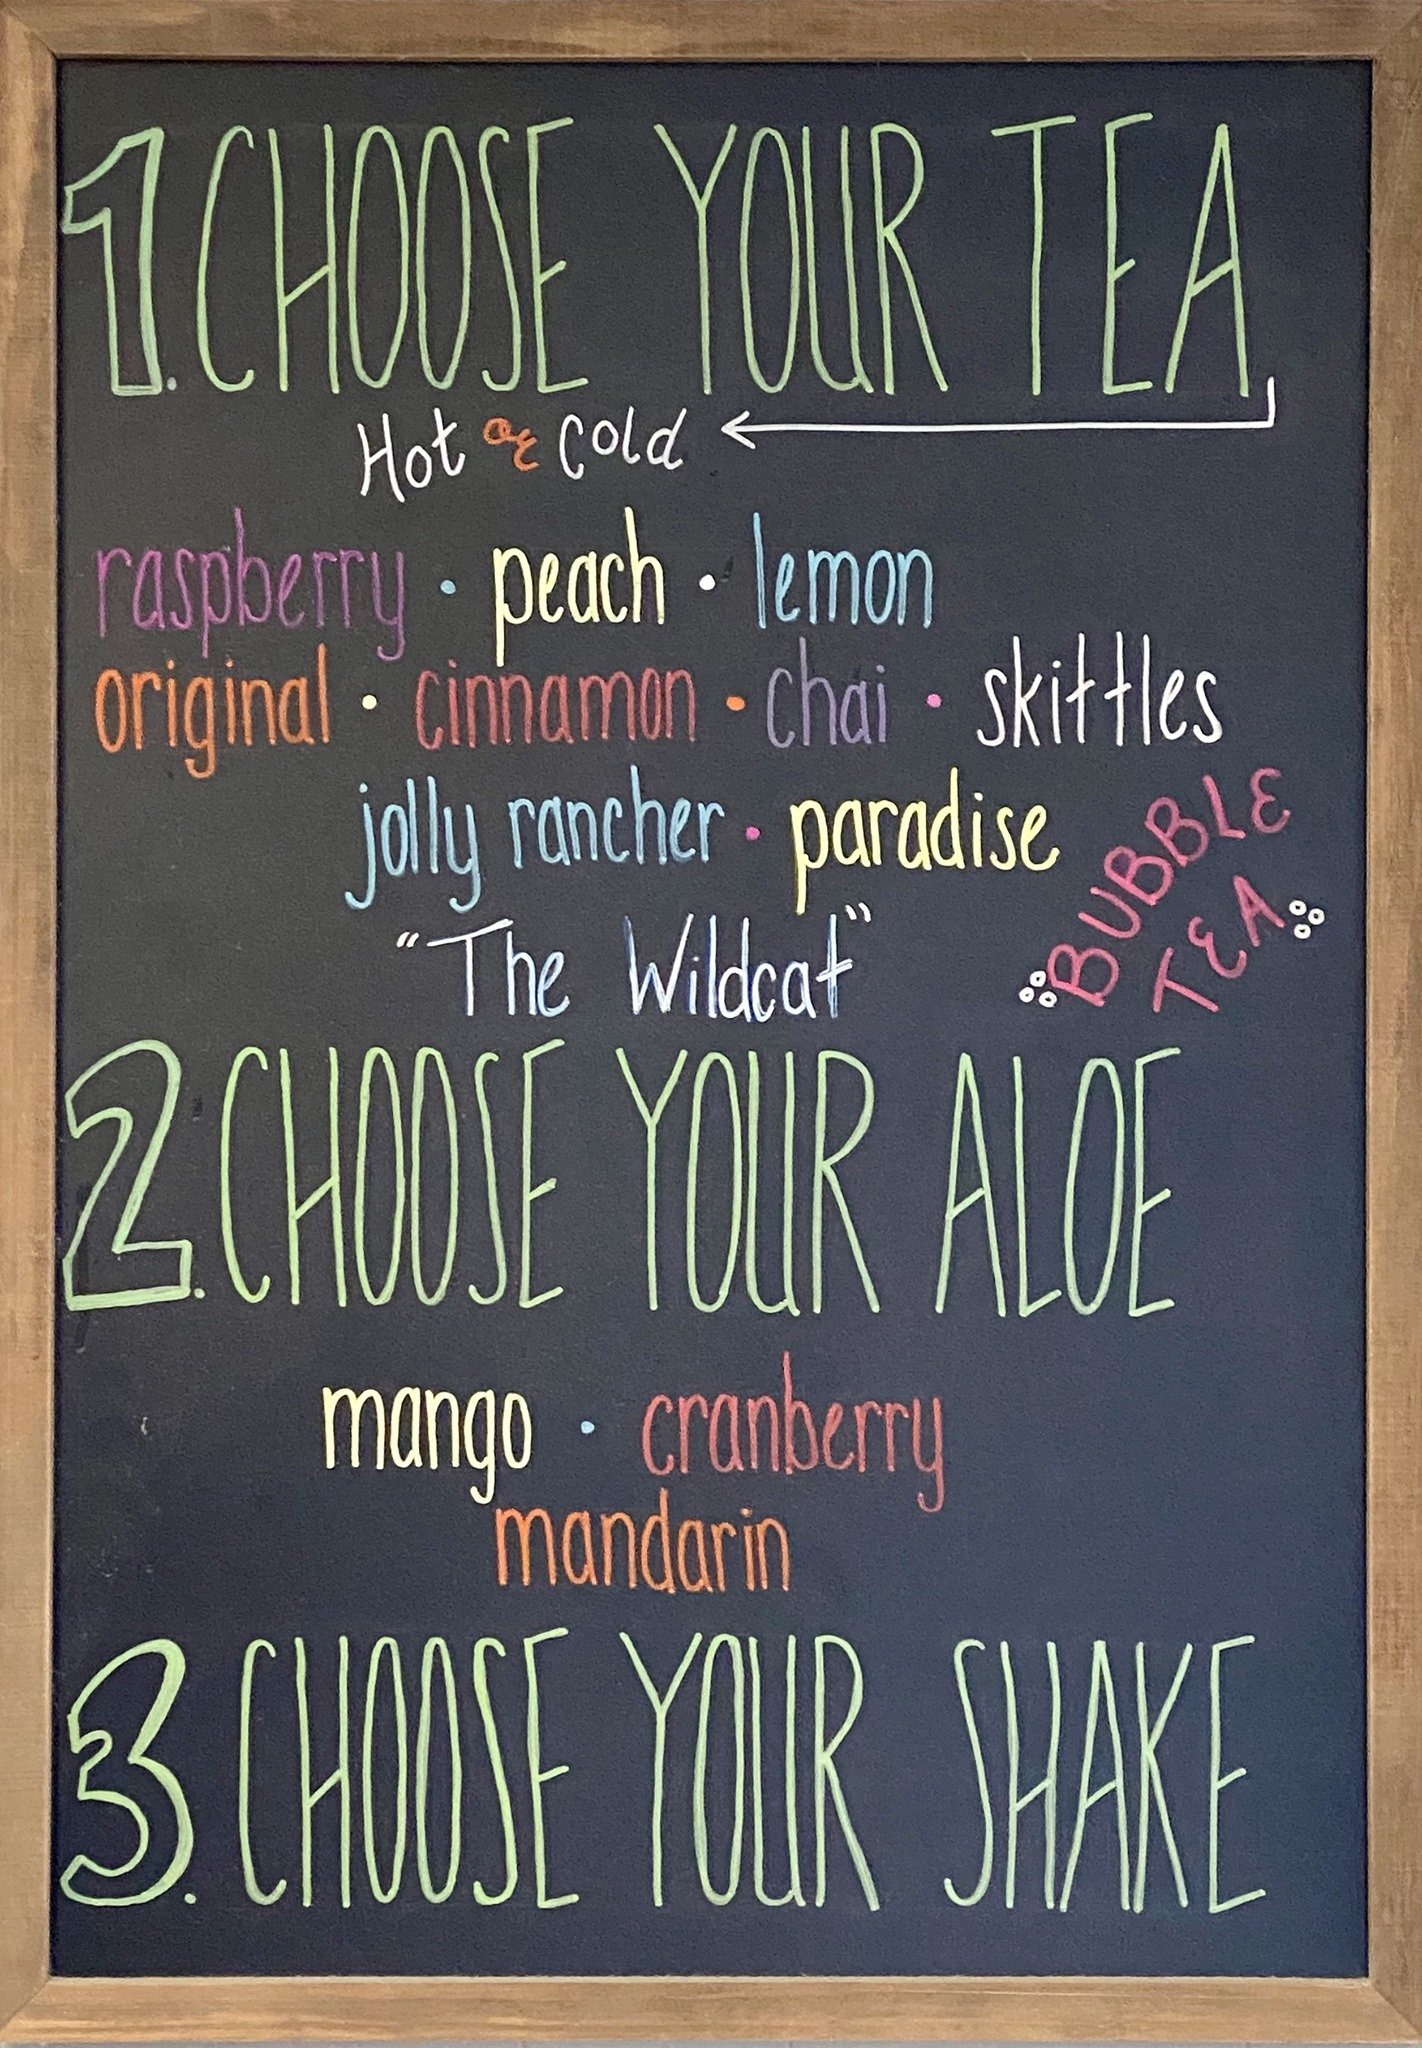 1. CHOOSE YOUR TEA
Hot or cold
raspberry • peach • lemon
original • cinnamon • chai • skittles
jolly rancher • paradise
"The Wildcat"
BUBBLE
TEA
2. CHOOSE YOUR ALOE
mango • cranberry
mandarin
3. CHOOSE YOUR SHAKE